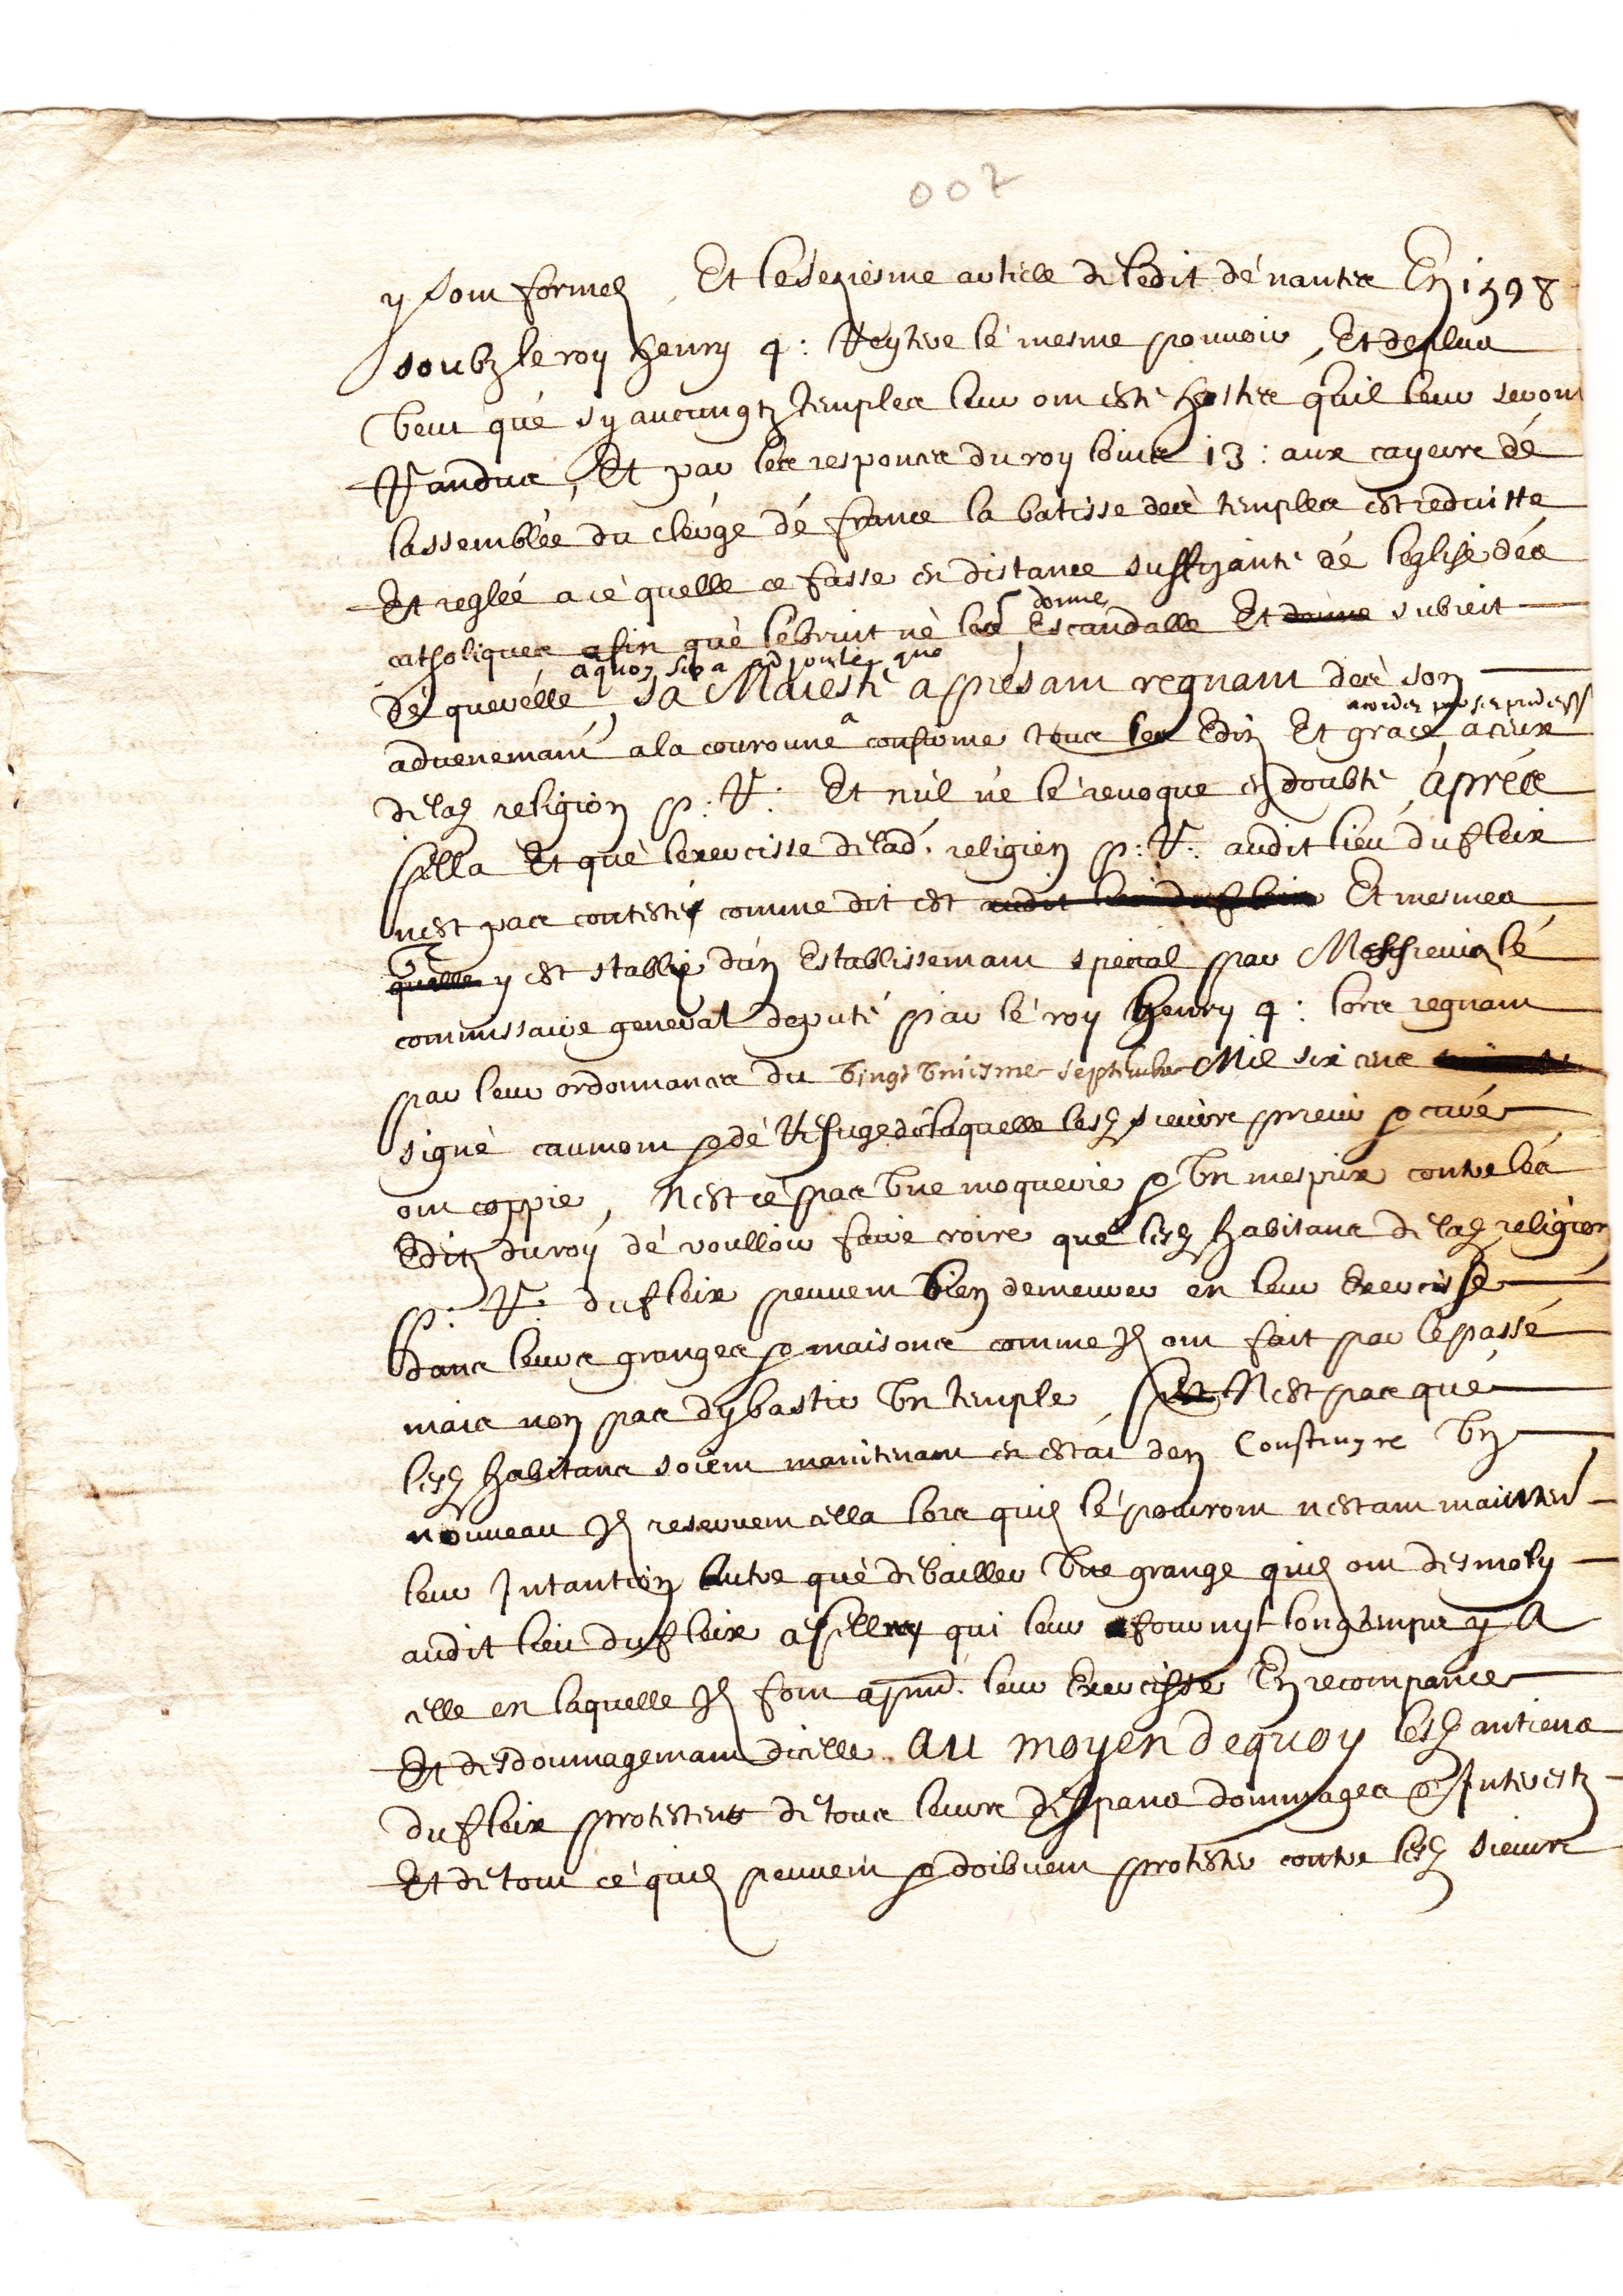 007
y sont formelz, Et le seziesme article de ledit de nantes En 1598
soubz le roy henry 4: Reytere le mesme pouvoir, Et deplus
veut que sy aucungtz temples leur ont esté hostes quil leur seront
Randus, Et par les responces du roy louis 13: aux cayeirs de
lassemblée du clergé de france la batisse des temples est reduitte
Et reglée a ce quelle ce fasse en distance suffizante de leglise des
donne
catholiques afin que le bruit ne les Escandalle Et donne subieit
a quoy sera adjouté que
de querelle, sa Maiesté aprésant regnant dès son
acordes par ses predess
advenemant a la couronne a confirme tous les Edis Et grace a ceux
de lad religion p: R: Et nul ne le revoque en doubte, après
sella Et que lexercisse de lad. religion p: R: audit lieu du fleix
nest pas contesté comme dit est audit lieu du fleix Et mesmes
quelle y est stablie dun Establissemant special par Messieurs le
commissaire general deputé par le roy henry 4: lors regnant
par leur ordonnance du vingt uniesme septembre Mil six cens
signé caumont & de Refuge de laquelle lesd sieurs prieur & curé
ont coppie, Nest ce pas une moquerie & un mespris contre les
Editz du roy de voulloir faire croire que lesd habitans de lad religion
p: R: du fleix peuvent bien demeurer en leur Exercisse
dans leurs granges & maisons comme Ilz ont fait par le passé
mais non pas dy bastir un temple, Nest pas que
lesd habitans soient maintenant en estat den Construyre un
nouveau Ilz reservent cella lors quilz le pouront nestant mainten
leur Intantion autre que de bailler une grange quilz ont desmoly
audit lieu du fleix a selluy qui leur a fournyt longtemps y A
celle en laquelle Ilz font apnt. leur Exercisse En recompance
Et desdoumagemant dicelle. au moyen dequoy lesd antiens
du fleix protestent de tous leurs despans dommages & Interestz
Et de tout ce quilz peuvent & doibvent protester contre lesd sieurs